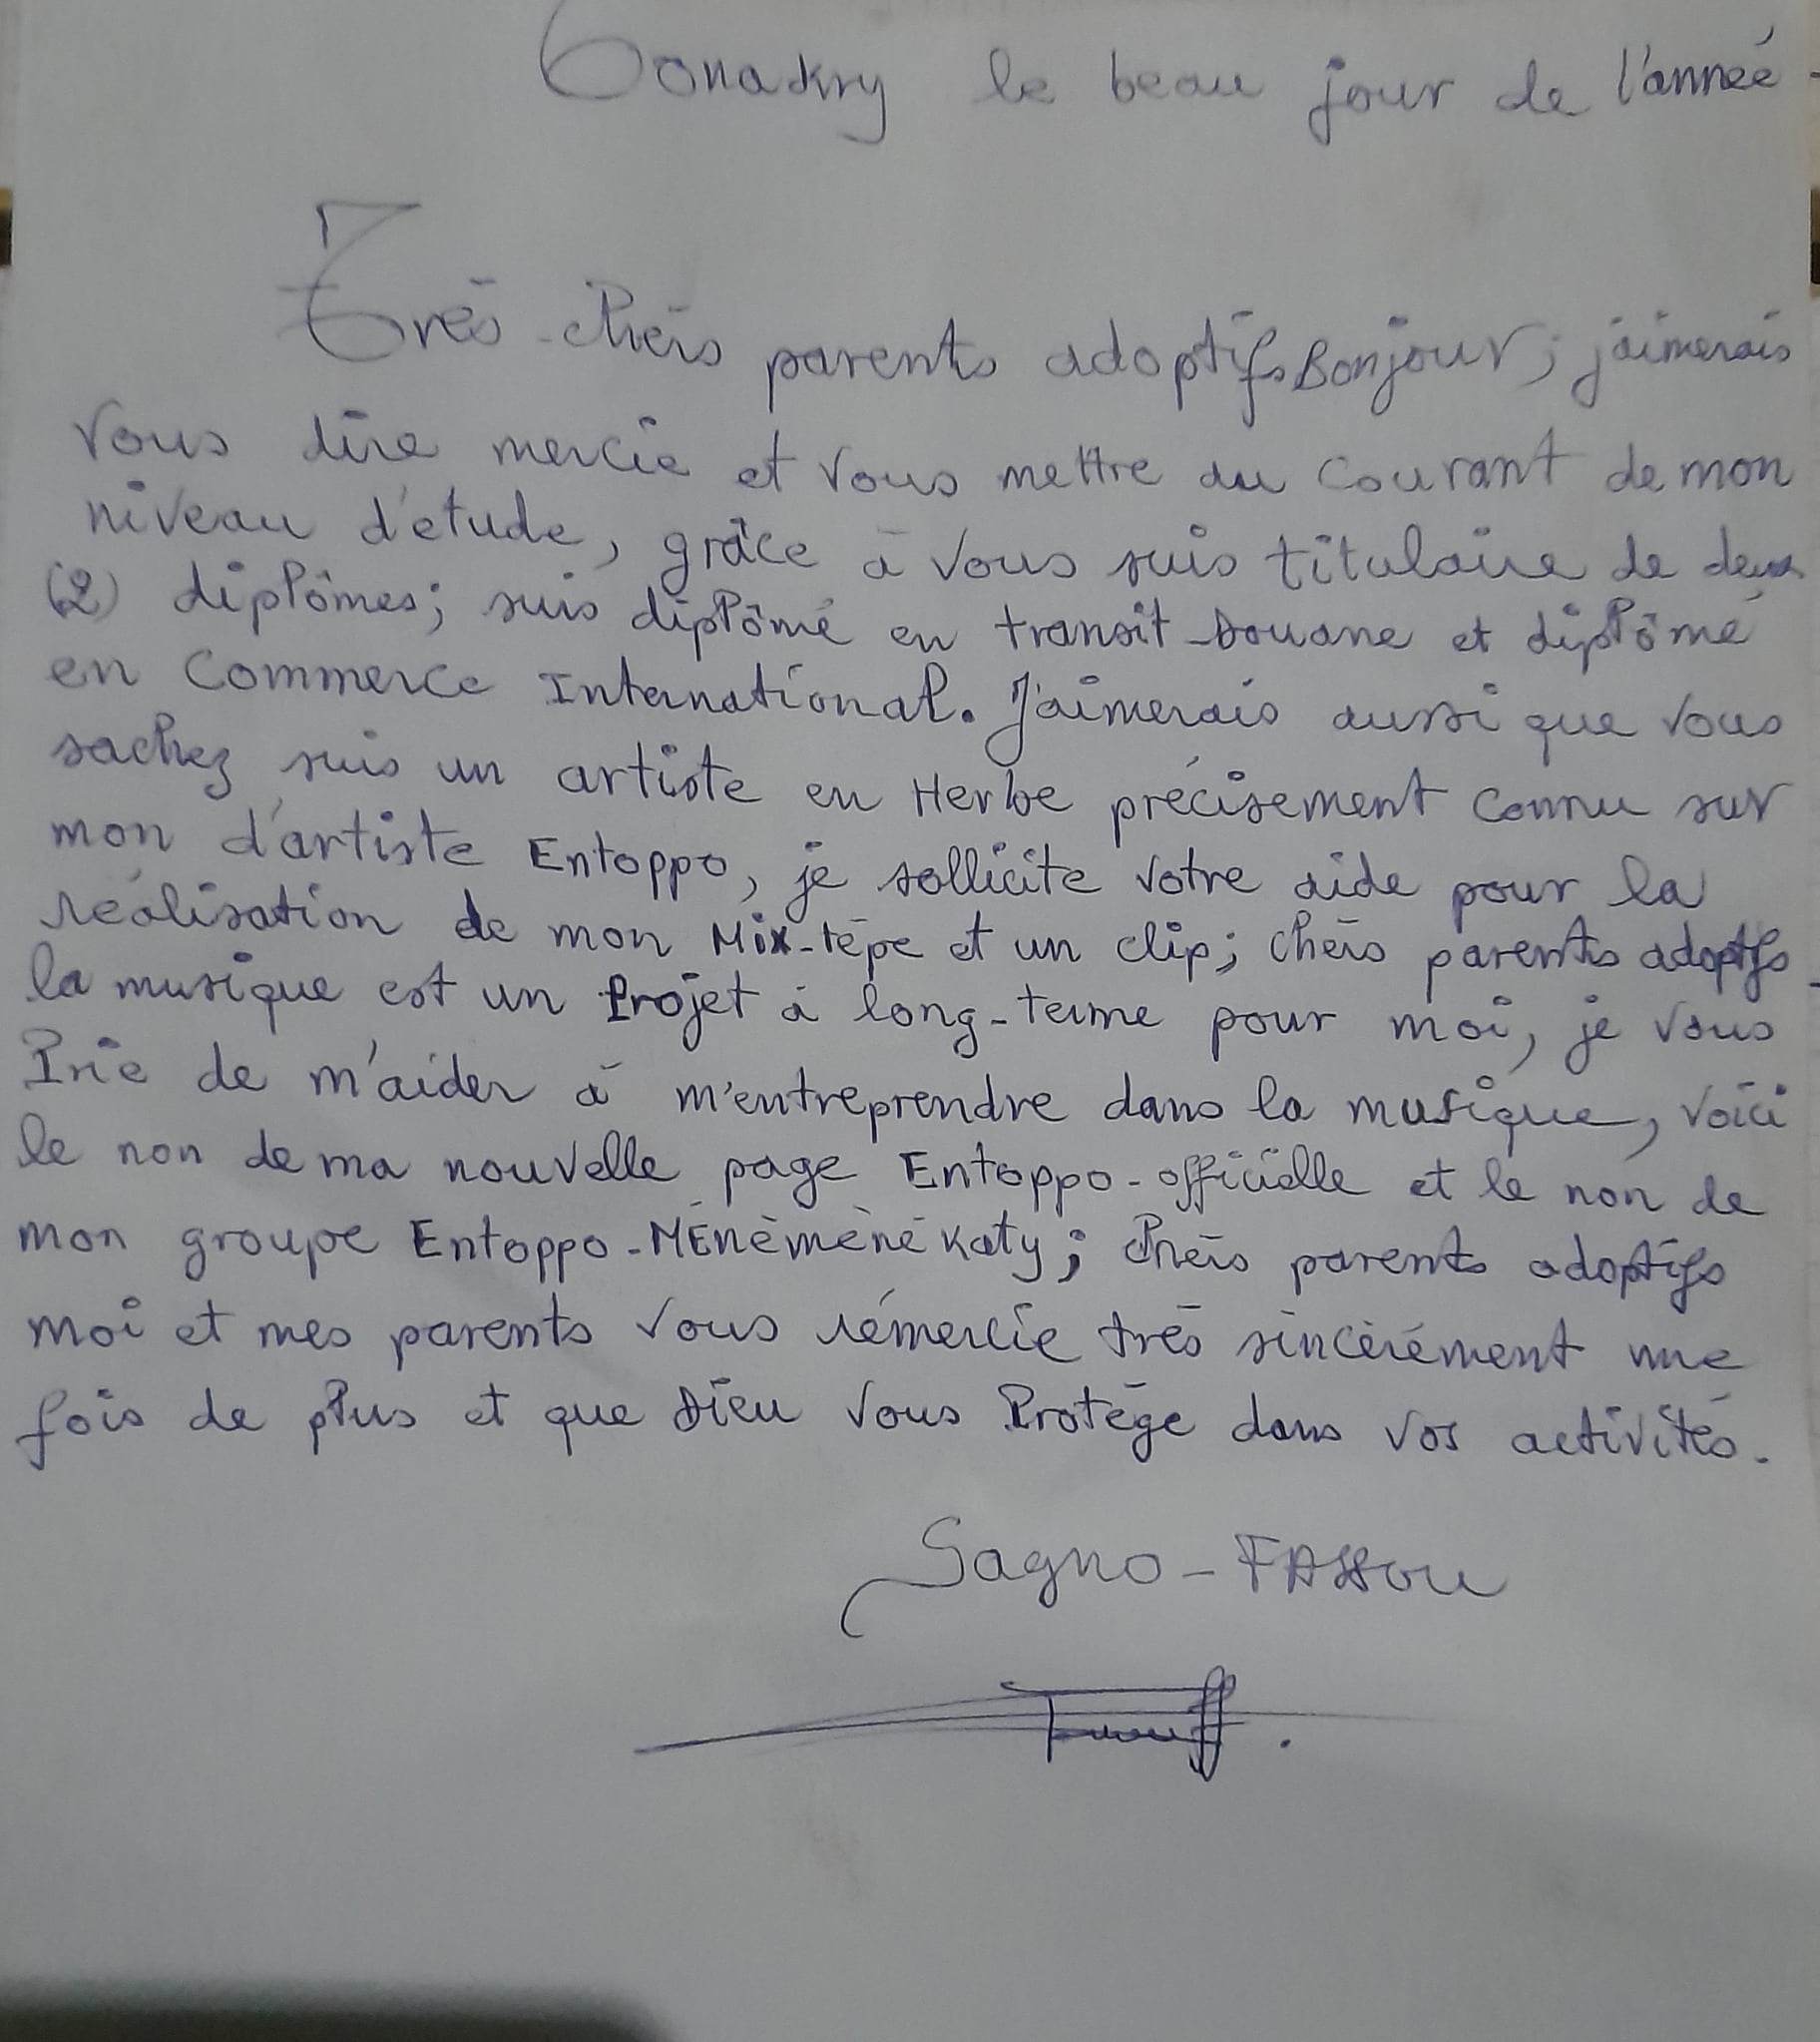 Conakry le beau jour de l'année.
Très chers parents adoptifs Bonjour; j'aimerais
vous dire mercie et vous mettre au courant de mon
niveau d'étude, grâce à vous suis titulaire de deux
(2) diplômes; suis diplômé en transit-Douane et diplômé
en Commerce International. J'aimerais aussi que vous
sachez suis un artiste en Herbe précisement connu sur
mon d'artiste Entoppo, je sollicite votre aide pour la
réalisation de mon Mix-tépe et un clip; chèrs parents adoptifs
la musique est un Projet à long-terme pour moi, je vous
Prie de m'aider à m'entreprendre dans la musique, voici
le non de ma nouvelle page Entoppo-officielle et le non de
mon groupe Entoppo-MÉnèmènè Katy; chèrs parents adoptifs
moi et mes parents vous rémercie très sincèrément une
fois de plus et que Dieu vous Protège dans vos activités.
Sagno-FASSOU